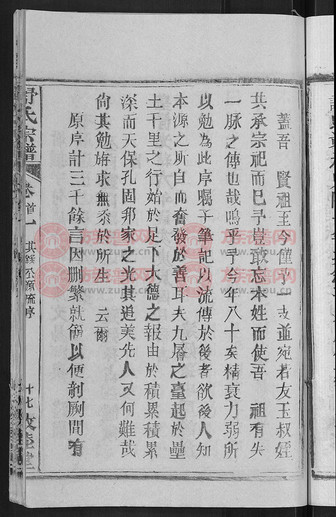 蓋吾　賢祖王今僅予一支並宛若友玉叔姪
共承宗祀而已予豈敢忘本姓而使吾　祖有失
一脉之傳也哉嗚乎予今年八十矣精衰力弱所
以勉為此序囑于筆記以流傳於後者欲後人知
本源之所自而奮發於善耳夫九層之臺起於壘
土千里之行始於足下大德之報由於積累積累
深而天保孔固邦家之光其追美先人又何難哉
尚其勉旃求無忝於所生　云爾
原序計三千餘言因刪繁就簡以便剞劂間有
氏宗譜
卷首一
源流序
十七
堂